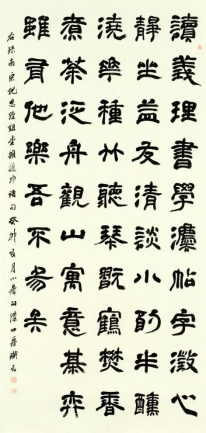 讀義理書學灋帖字澂心
靜坐益友清談小酌半醺
澆花種竹聽琴翫鶴焚香
煮茶泛舟觀山寓意棊弈
雖有他樂吾不易矣